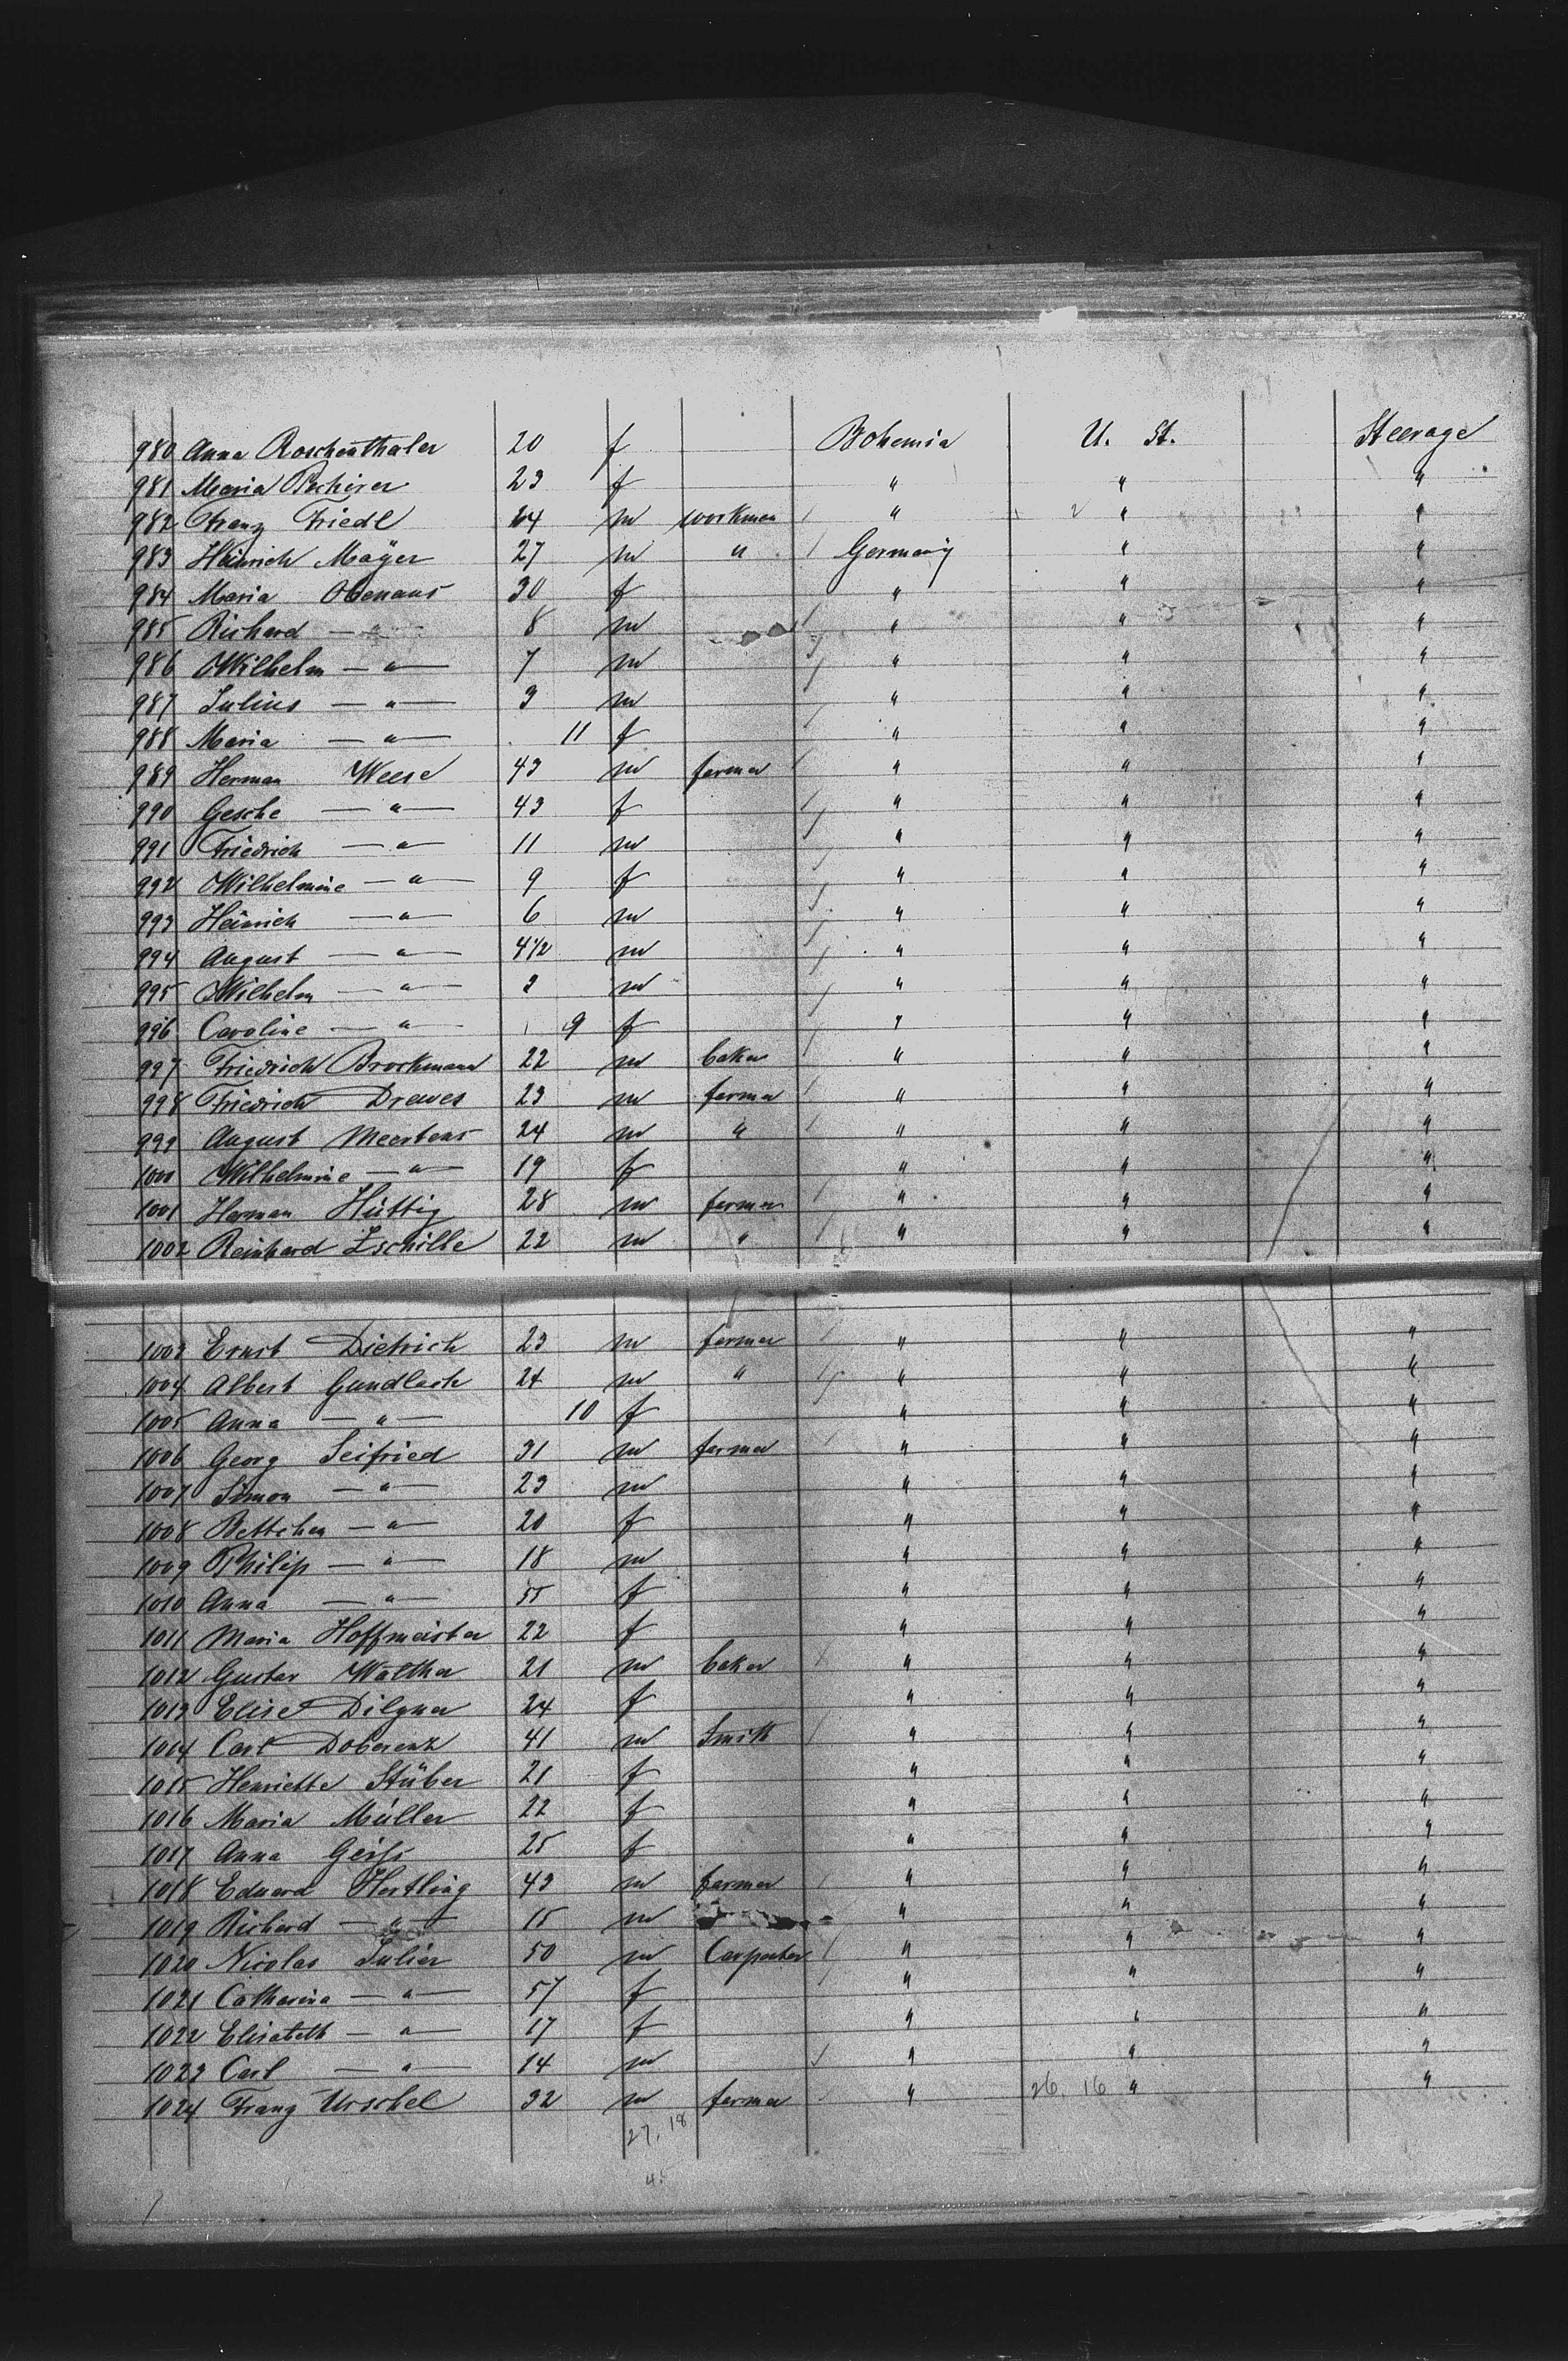 980 Anna Roschenthaler 20 f Bohemia U. St. Steerage
981 Maria 23 f " " "
982 Franz Friedl 24 m workman " " "
983 Heinrich Mayer 27 m " Germany " "
984 Maria Obenaus 30 f " " "
985 Richard — " — 8 m " " "
986 Wilhelm — " — 7 m " " "
987 Julius — " — 3 m " " "
988 Maria — " — 11 f " " "
989 Herman Weese 43 m farmer " " "
990 Gesche — " — 43 f " " "
991 Friedrich — " — 11 m " " "
992 Wilhelmine — " — 9 f " " "
993 Heinrich — " — 6 m " " "
994 August — " — 4 1/2 m " " "
995 Wilhelm — " — 3 m " " "
996 Caroline — " — 9 f " " "
997 Friedrich Brockmann 22 m baker " " "
998 Friedrich Drewes 23 m farmer " " "
999 August Meertens 24 m " " " "
1000 Wilhelmine — " — 19 f " " "
1001 Herman Hüttig 28 m farmer " " "
1002 Reinhard Zschille 22 m " " " "
1003 Ernst Dietrich 23 m farmer " " "
1004 Albert Gundlach 24 m " " " "
1005 Anna — " — 10 f " " "
1006 Georg Seifried 31 m farmer " " "
1007 Simon — " — 23 m " " "
1008 Bettchen — " — 20 f " " "
1009 Philip — " — 18 m " " "
1010 Anna — " — 55 f " " "
1011 Maria Hoffmeister 22 f " " "
1012 Gustav Walther 21 m baker " " "
1013 Elise Dilgner 24 f " " "
1014 Carl Doberenz 41 m Smith " " "
1015 Henriette Stüber 21 f " " "
1016 Maria Müller 22 f " " "
1017 Anna Geiss 25 f " " "
1018 Eduard Hertling 43 m farmer " " "
1019 Richard — " — 15 m " " "
1020 Nicolas Julier 50 m Carpenter " " "
1021 Catharina — " — 57 f " " "
1022 Elisabeth — " — 17 f " " "
1023 Carl — " — 14 m " " "
1024 Franz Urschel 32 m farmer " 26. 16 " "
27, 18
45